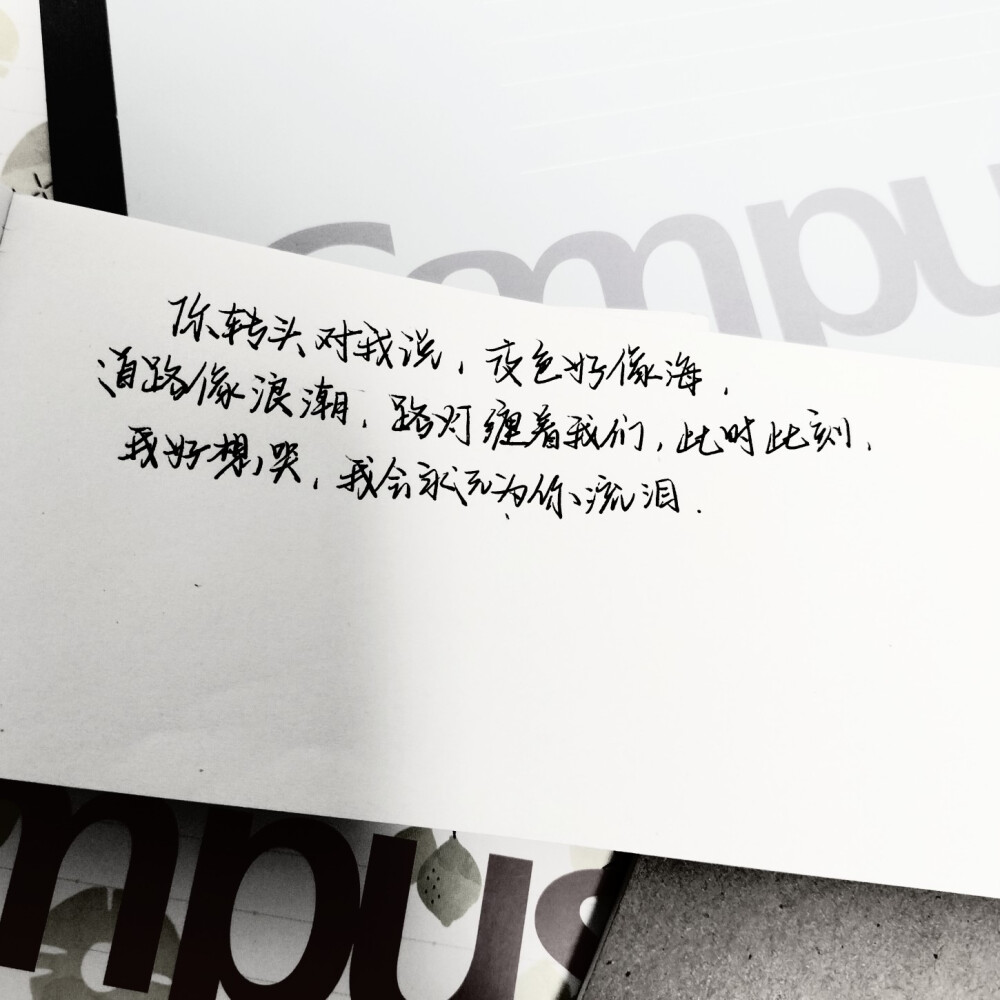 Campu
你转头对我说，夜色好像海，
道路像浪潮，路灯缠着我们，此时此刻，
我好想哭，我会永远为你流泪.
mpus